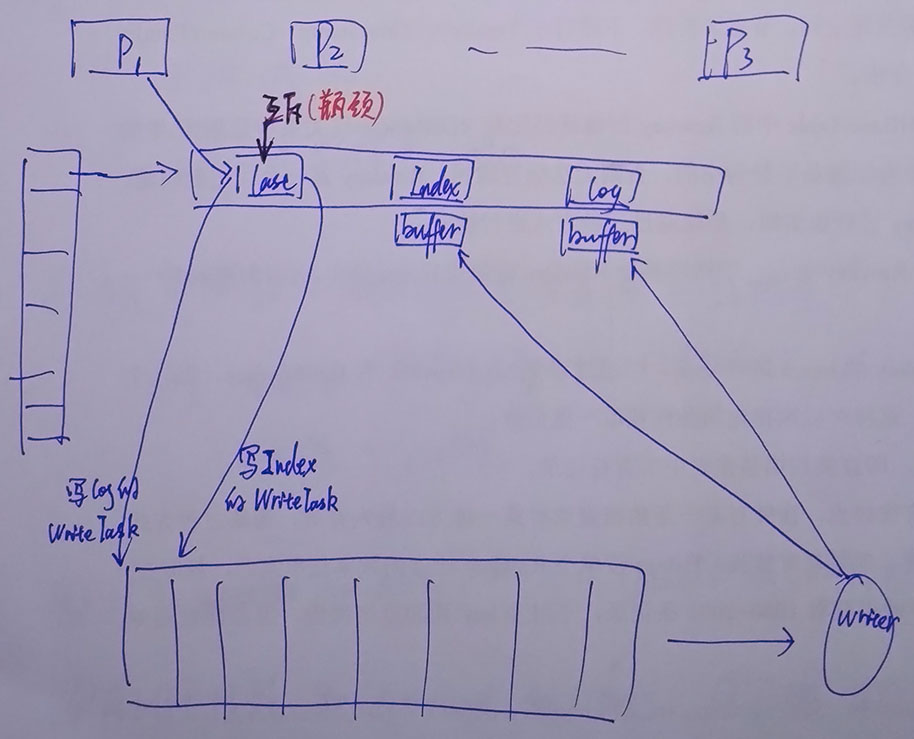 P1
P2
P3
互斥(瓶颈)
Index
Log
buffer
buffer
写Index
的 WriteTask
写Log的
WriteTask
writer